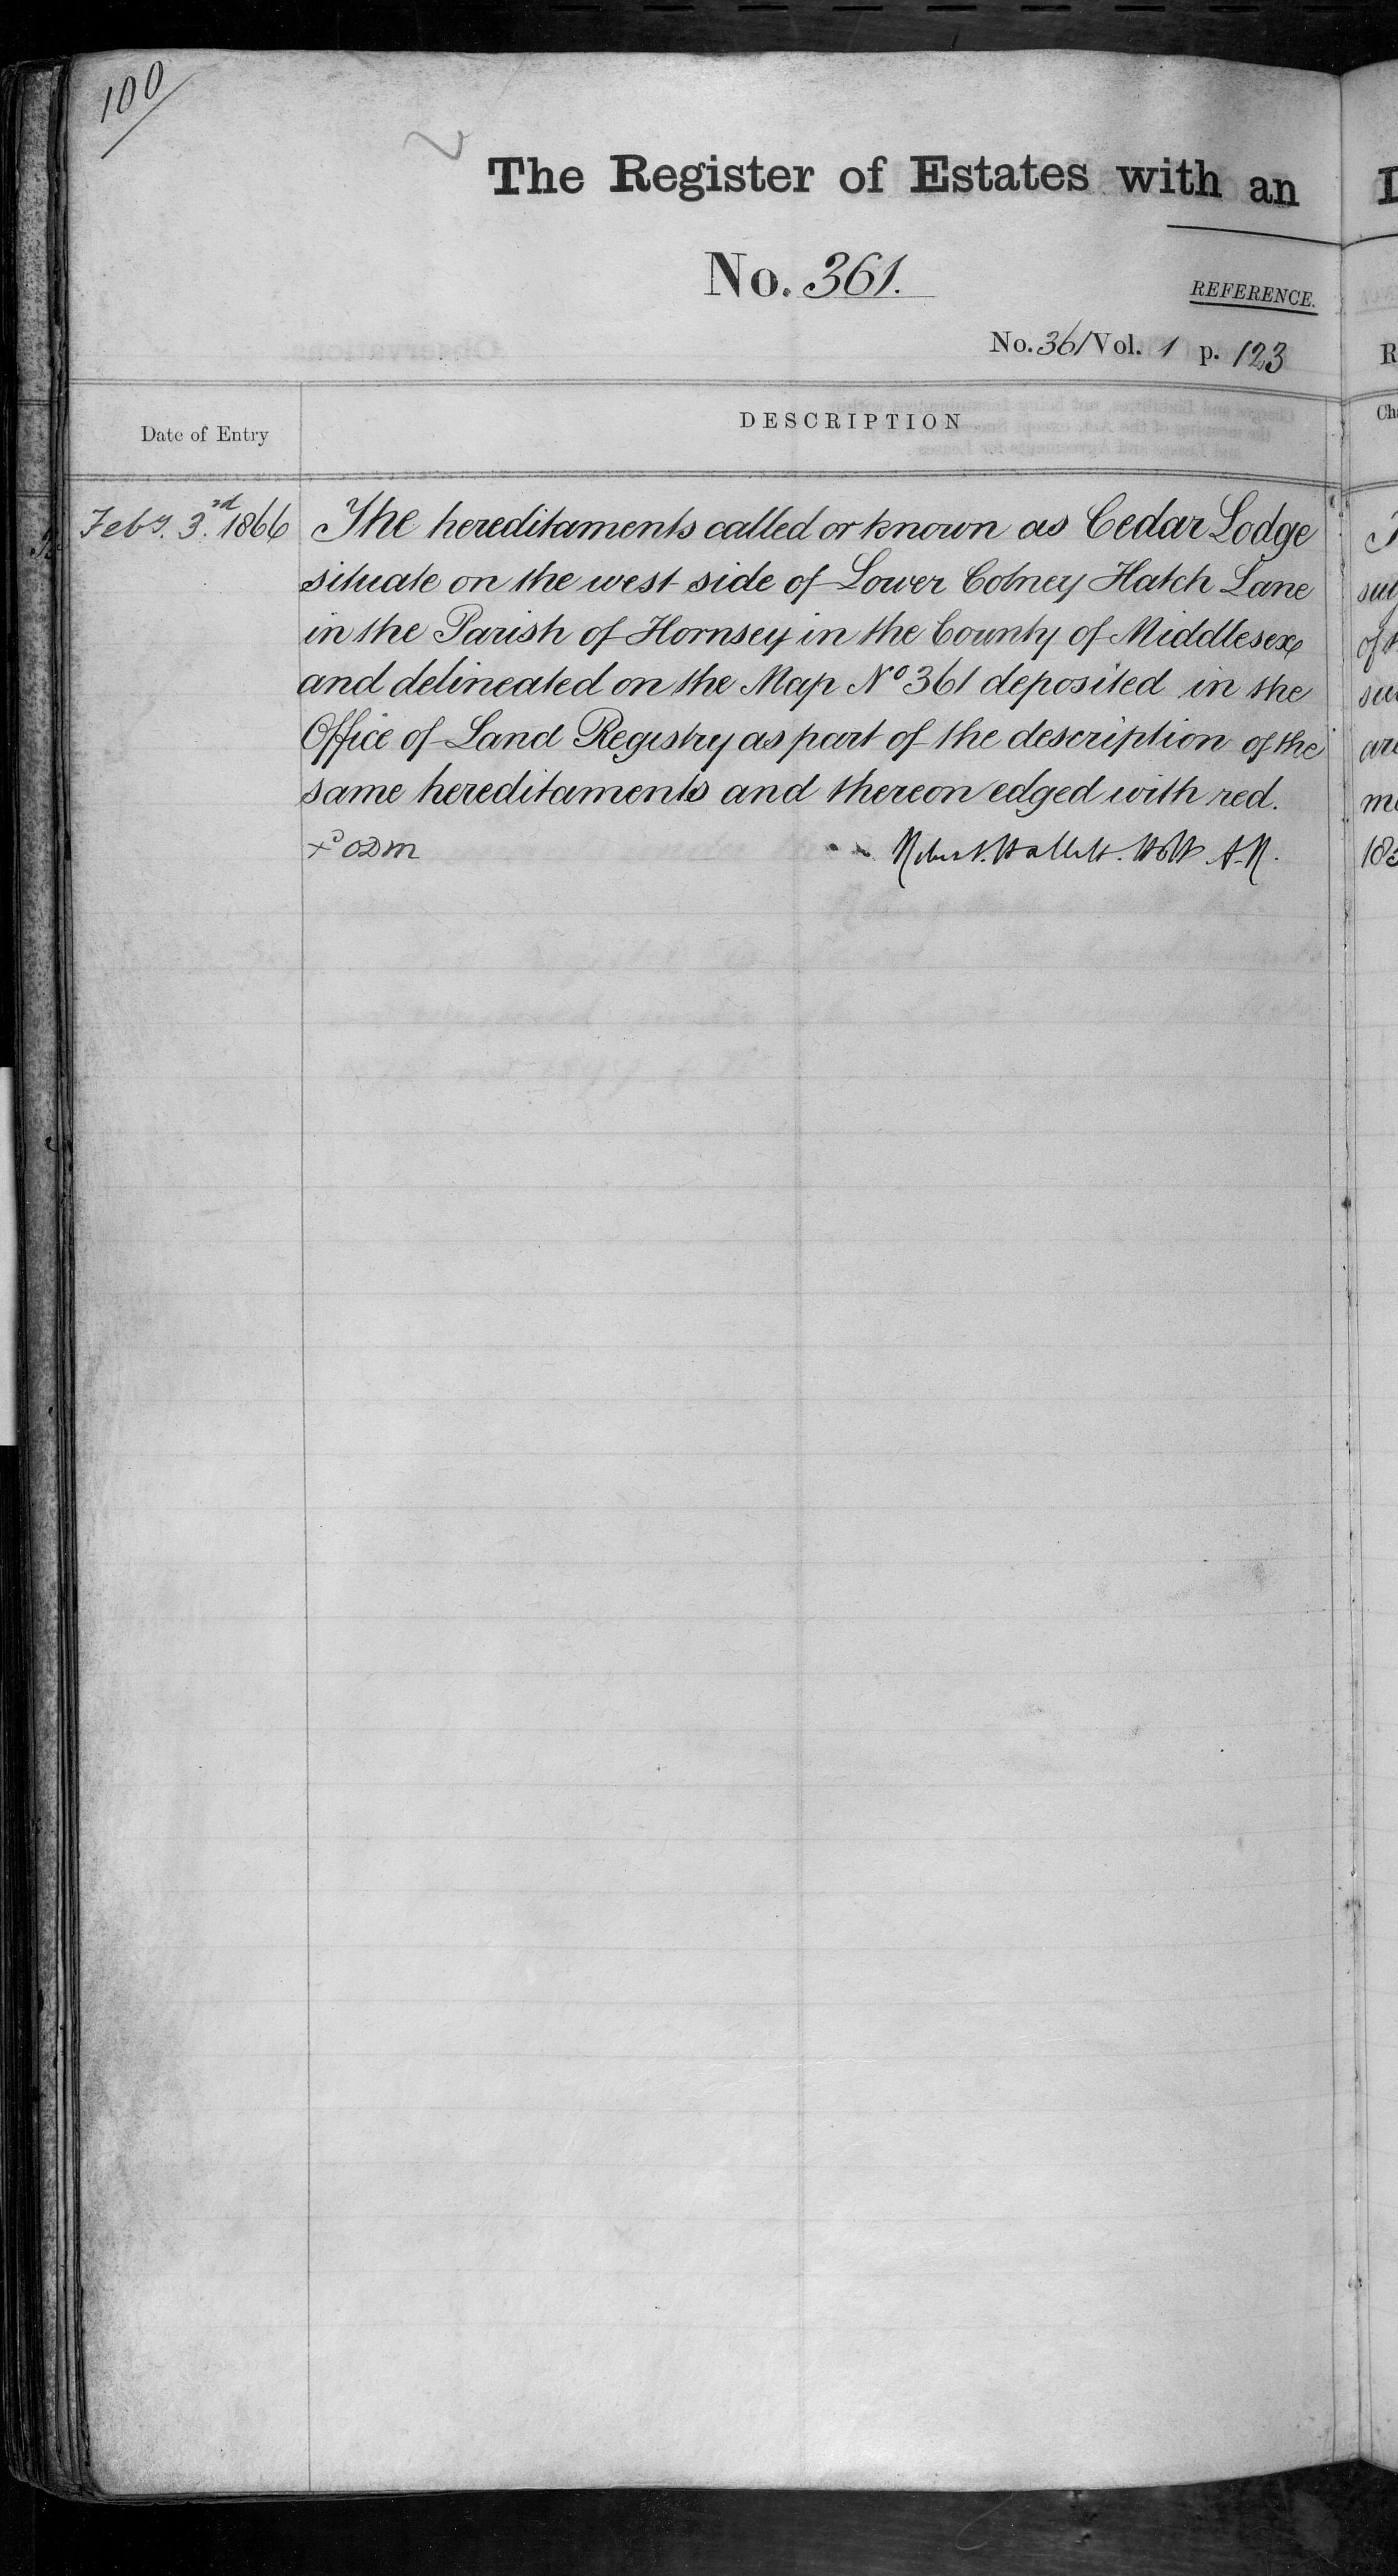 100
The Register of Estates with an
No. 361.
REFERENCE.
No. 361 Vol. 1 p. 123
Date of Entry
DESCRIPTION
Feby. 3rd. 1866
The hereditaments called or known as Cedar Lodge
situate on the west side of Lower Colney Hatch Lane
in the Parish of Hornsey in the County of Middlesex
and delineated on the Map No 361 deposited in the
Office of Land Registry as part of the description of the
same hereditaments and thereon edged with red.
Robert Hallett Holt A.R.
R
Ch
of t
are
183